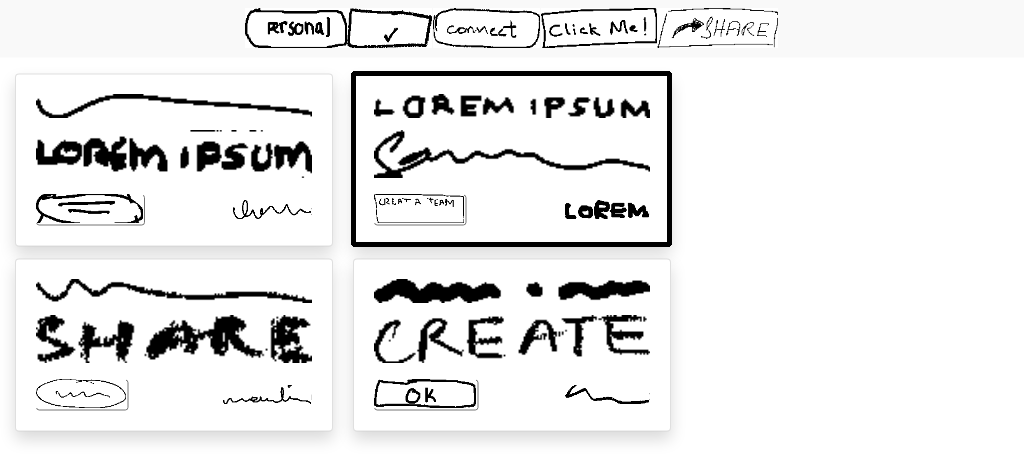 Personal ✓ connect Click Me! SHARE
LOREM IPSUM
LOREM IPSUM
CREAT A TEAM
LOREM
SHARE
CREATE
OK